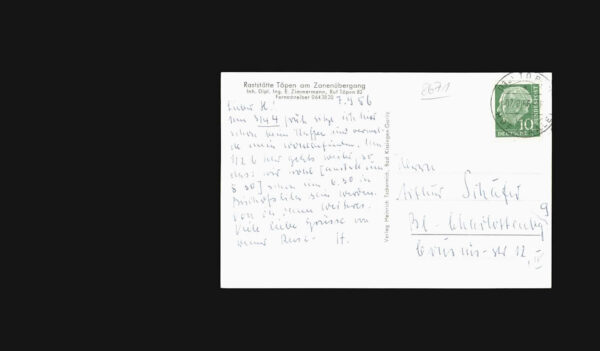 Raststätte Töpen am Zonenübergang
Inh. Dipl. Ing. E. Zimmermann, Ruf Töpen 82
Fernschreiber 0643820
Lieber A!
7.9.56
Um 3/4 4 früh sitze ich hier
schon beim Kaffee und
Um
1/2 6 Uhr gehts weiter, so
dass wir wohl [anstatt um
8.30] schon um 6.30 in
sein werden.
Von da dann Weiteres.
Viele liebe Grüsse von
H.
Verlag Heinrich Tschernich, Bad Kissingen-Garitz
8671
10
DEUTSCHE BUNDESPOST
Herrn
Arthur Schäfer
Bl. Charlottenbg 9
str 12, II